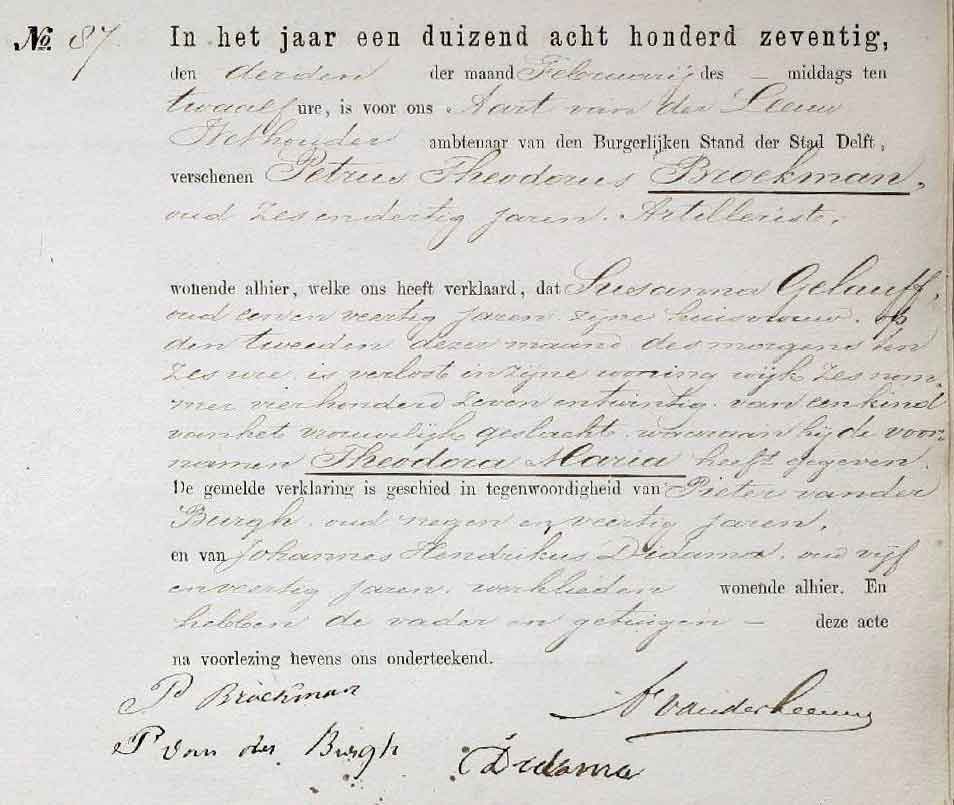 No. 87. In het jaar een duizend acht honderd zeventig,
den derden der maand Februarij des — middags ten
twaalf ure, is voor ons Aart van der Leeuw
Wethouder ambtenaar van den Burgerlijken Stand der Stad Delft,
verschenen Petrus Theodorus Broekman,
oud zes en dertig jaren. Artillerist,
wonende alhier, welke ons heeft verklaard, dat Susanna Gelauff,
oud een en veertig jaren zijne huisvrouw. op
den tweeden dezer maand des morgens ten
zes ure is verlost in zijne woning wijk zes num-
mer vierhonderd zeven en twintig. van een kind
van het vrouwelijk geslacht. waaraan hij de voor-
namen Theodora Maria heeft gegeven.
De gemelde verklaring is geschied in tegenwoordigheid van Pieter van der
Burgh. oud negen en veertig jaren,
en van Johannes Hendrikus Dudama. oud vijf
en veertig jaren. werklieden wonende alhier. En
hebben de vader en getuigen — deze acte
na voorlezing nevens ons onderteekend.
P Broekman
A vander Leeuw
P van der Burgh
Dudama